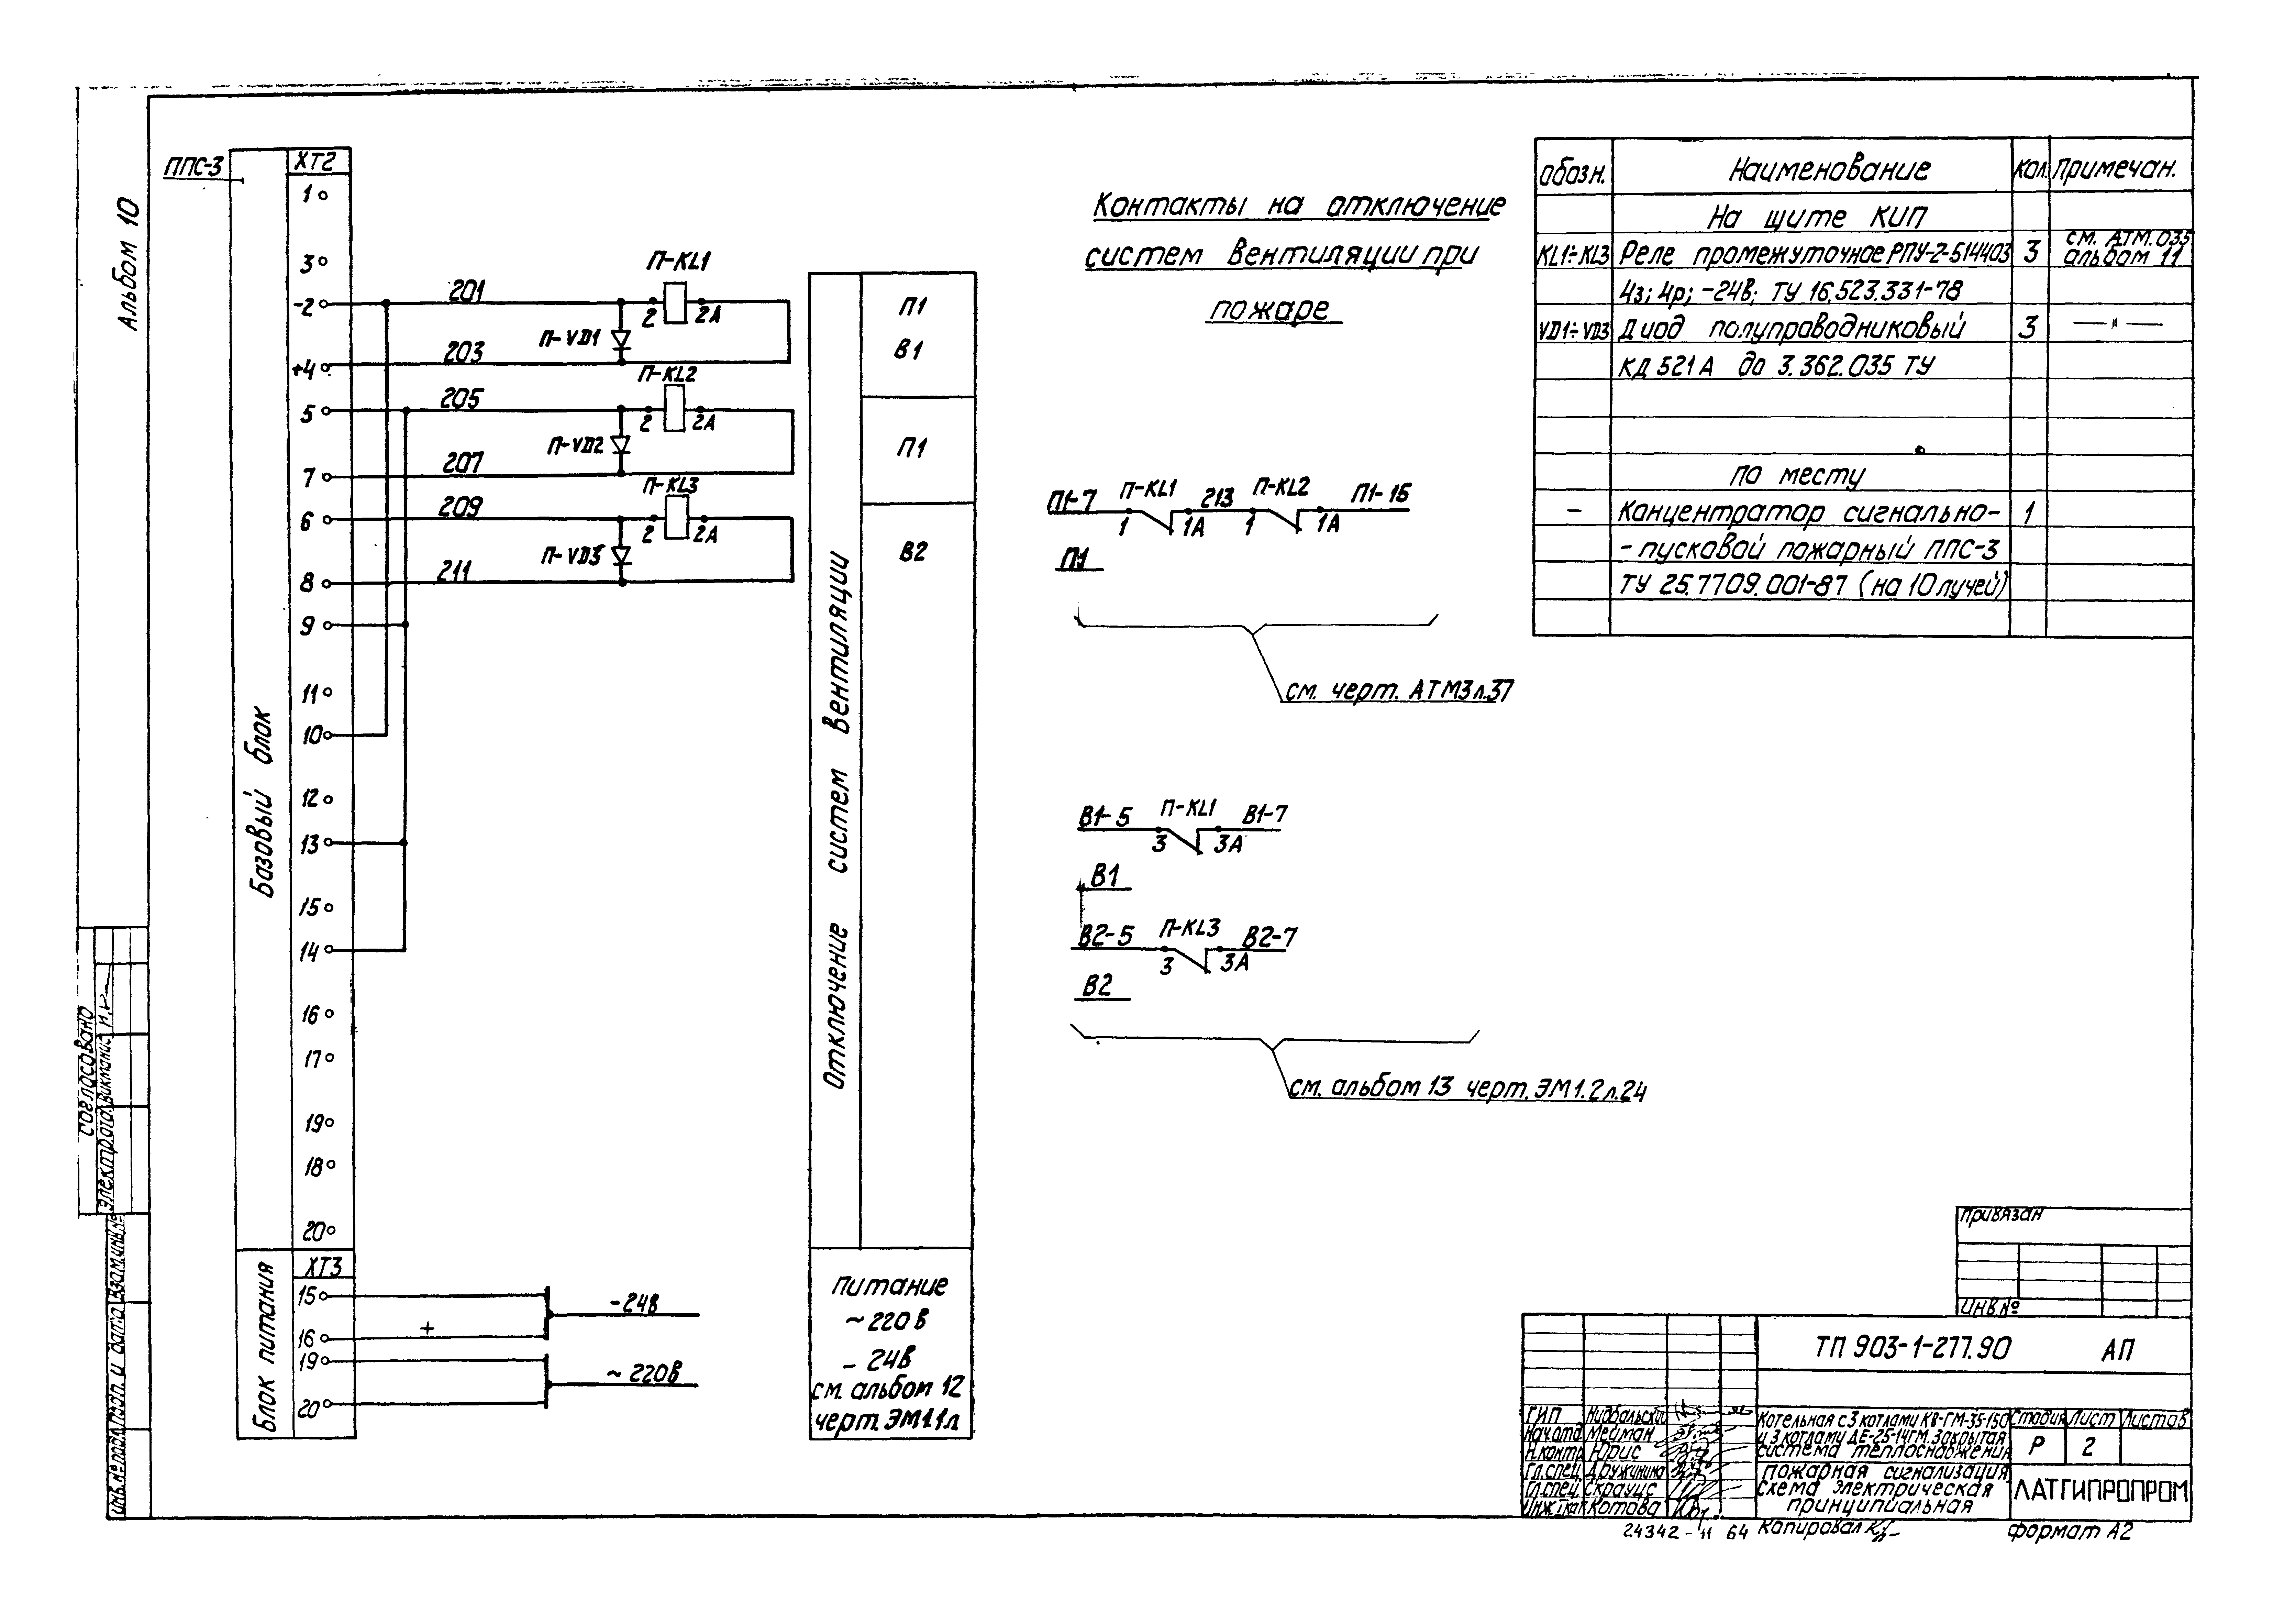 Альбом 10
ППС-3
Базовый блок
ХТ2
1
3
-2
+4
5
7
6
8
9
11
10
12
13
15
14
16
17
19
18
20
Блок питания
ХТ3
15
16
19
20
201
П-KL1
2 2А
П-VD1
203
П-KL2
205
2 2А
П-VD2
207
П-KL3
209
2 2А
П-VD3
211
+
-24В
~220В
Отключение систем вентиляции
П1
В1
П1
В2
Питание
~220В
- 24В
см. альбом 12
черт. ЭМ1.1л
Контакты на отключение
систем вентиляции при
пожаре
П1-7 П-KL1 213 П-KL2 П1-15
1 1А 1 1А
П1
см. черт. АТМ3л.37
В1-5 П-KL1 В1-7
3 3А
В1
В2-5 П-KL3 В2-7
3 3А
В2
см. альбом 13 черт. ЭМ1.2л.24
Обозн. Наименование Кол. Примечан.
На щите КИП
KL1÷KL3 Реле промежуточное РПУ-2-514403 3 см. АТМ.035 альбом 11
4з; 4р; -24в; ТУ 16.523.331-78
VD1÷VD3 Диод полупроводниковый 3 —"—
КД 521А до 3.362.035 ТУ
По месту
- Концентратор сигнально- 1
- пусковой пожарный ППС-3
ТУ 25.7709.001-87 (на 10 лучей)
Привязан
Инв.№
ТП 903-1-277.90 АП
ГИП Нидбальский
Нач.отд. Мейман
Н.контр. Юрис
Гл.спец. Дружинина
Гл.спец. Скрауцс
Инж.1кат Котова
Котельная с 3 котлами КВ-ГМ-35-150
и 3 котлами ДЕ-25-14ГМ. Закрытая
система теплоснабжения
Стадия Лист Листов
Р 2
Пожарная сигнализация
Схема электрическая
принципиальная
ЛАТГИПРОПРОМ
24342-11 64 Копировал
формат А2
Согласовано
Электроотд. Викманис
Инв.№подл. Подп. и дата Взам.инв.№